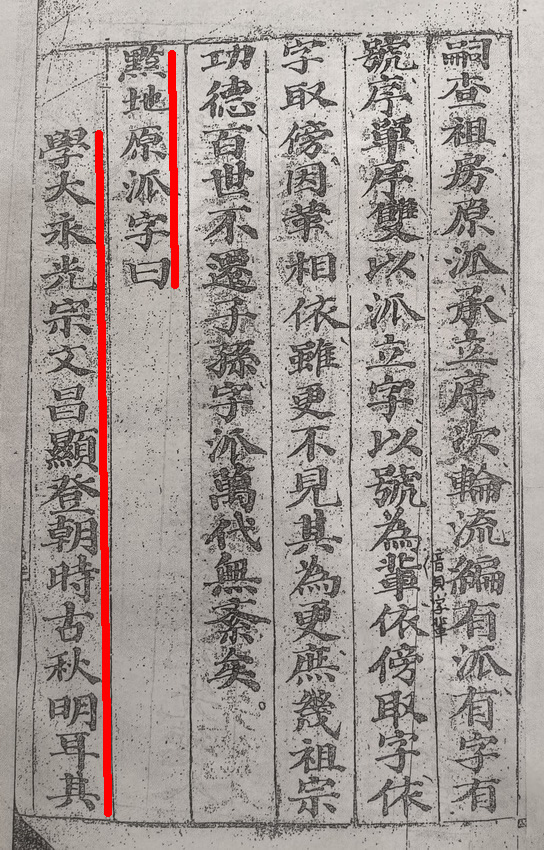 嗣查祖房原派承立序次輪流編有派有字有
號序單序雙以派立字以號為輩依傍取字依
字取傍因輩相依雖更不見其為更庶幾祖宗
功德百世不遷子孫字派萬代無紊矣。
黔地原派字曰
學大永光宗文昌顯登朝時古秋明耳其